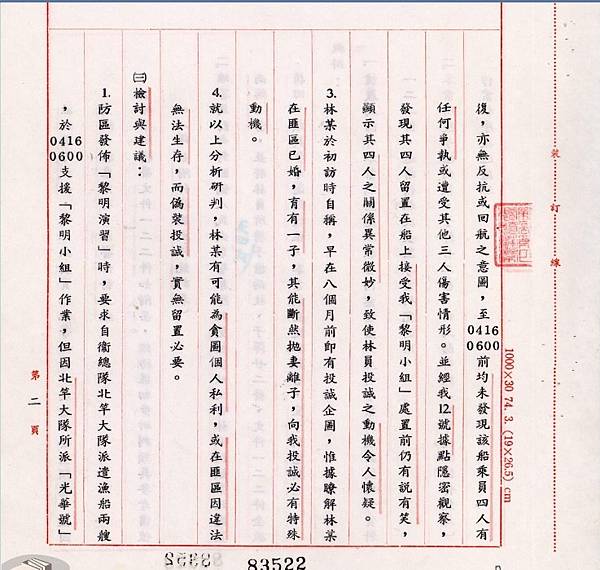 復，亦無反抗或回航之意圖，至04160600前均未發現該船乘員四人有
任何爭執或遭受其他三人傷害情形。並經我12.號據點隱密觀察，
發現其四人留置在船上接受我「黎明小組」處置前仍有說有笑，
顯示其四人之關係異常微妙，致使林員投誠之動機令人懷疑。
3.林某於初訪時自稱，早在八個月前即有投誠企圖，惟據瞭解林某
在匪區已婚，育有一子，其能斷然拋妻離子，向我投誠必有特殊
動機。
4.就以上分析研判，林某有可能為貪圖個人私利，或在匪區因違法
無法生存，而偽裝投誠，實無留置必要。
㈢檢討與建議：
1.防區發佈「黎明演習」時，要求自衛總隊北竿大隊派遣漁船兩艘
，於04160600支援「黎明小組」作業，但因北竿大隊所派「光華號」
裝訂線
1000×30 74. 3. (19×26.5) cm
第二頁
83522